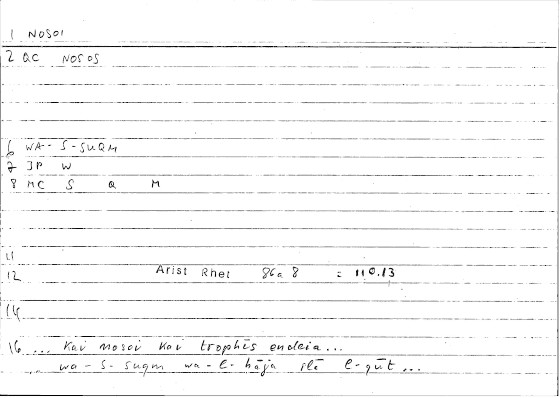 1 NOSOI
2 QC NOSOS
6 WA-- S-SUQM
7 JP W
8 MC S Q M
11
12 Arist Rhet 86a 8 = 110.13
14
16 ... kai nosoi kai trophēs endeia...
wa-s-suqm wa-l-ḥāja ilā l-qūt ...